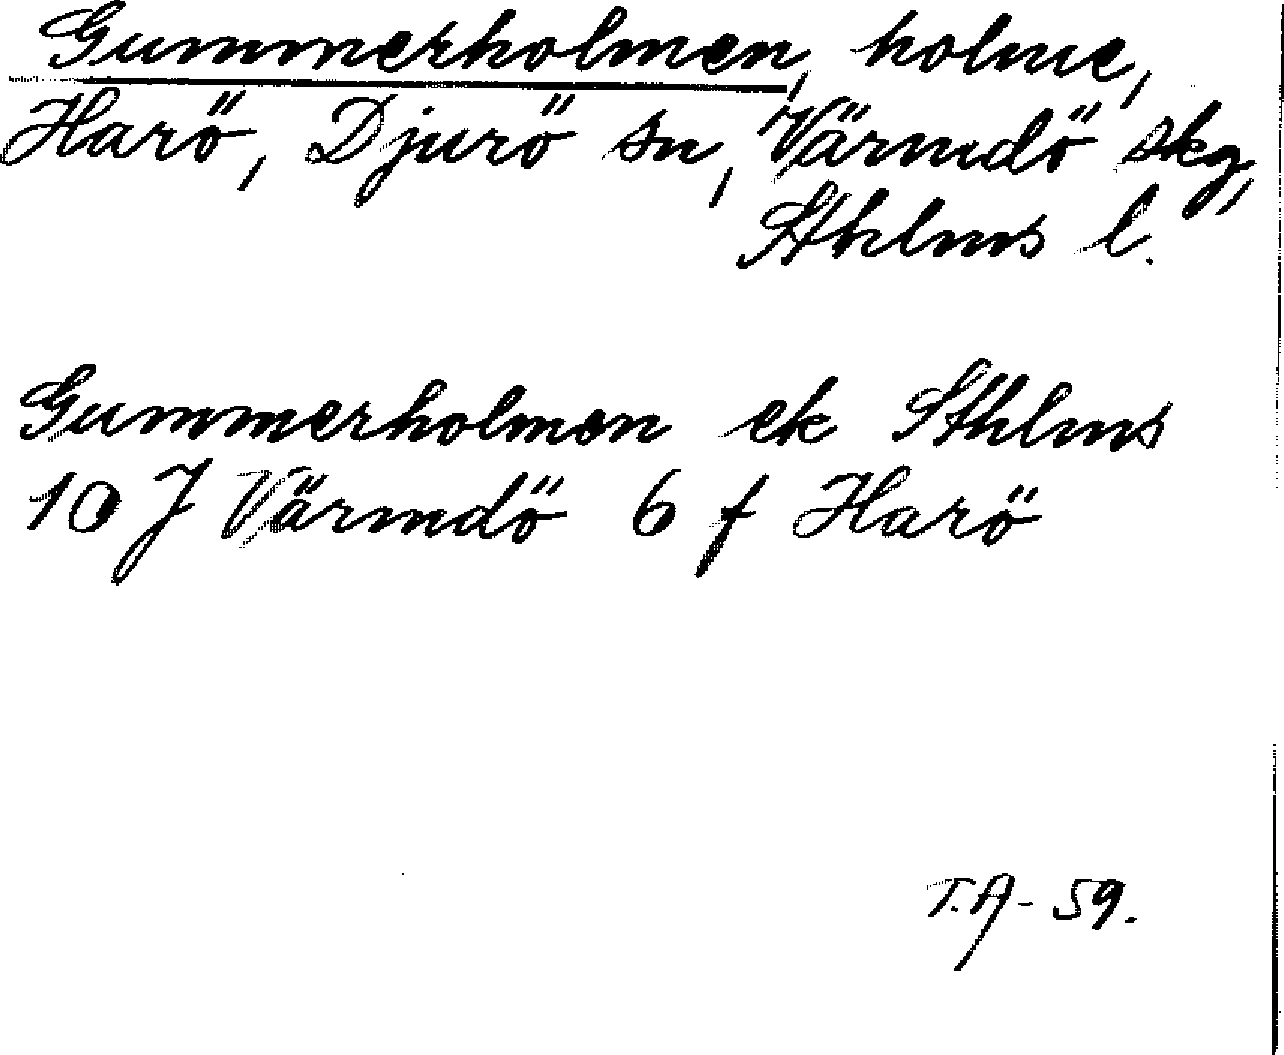 Gummerholmen, holme,
Harö, Djurö sn, Värmdö skg,
Sthlms l.
Gummerholmen ek Sthlms
10 J Värmdö 6 f Harö
T.A - 59.